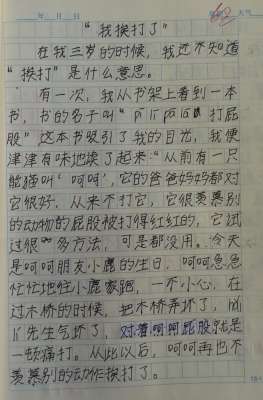 年 月 日
天气
“我挨打了”
在我三岁的时候，我还不知道
“挨打”是什么意思。
有一次，我从书架上看到一本
书，书的名子叫“ 打屁
股”这本书吸引了我的目光，我便
津津有味地读了起来“从前有一只
熊猫叫‘呵呵’，它的爸爸妈妈都对
它很好，从来不打它，它很羡慕别
的动物的屁股被打得红红的，它试
过很多方法，可是都没用。今天
是呵呵朋友小鹿的生日，呵呵急急
忙忙地往小鹿家跑，一不小心，在
过木桥的时候，把木桥弄坏了，
先生气坏了，对着呵呵屁股就是
一顿痛打。从此以后，呵呵再也不
羡慕别的动作挨打了。